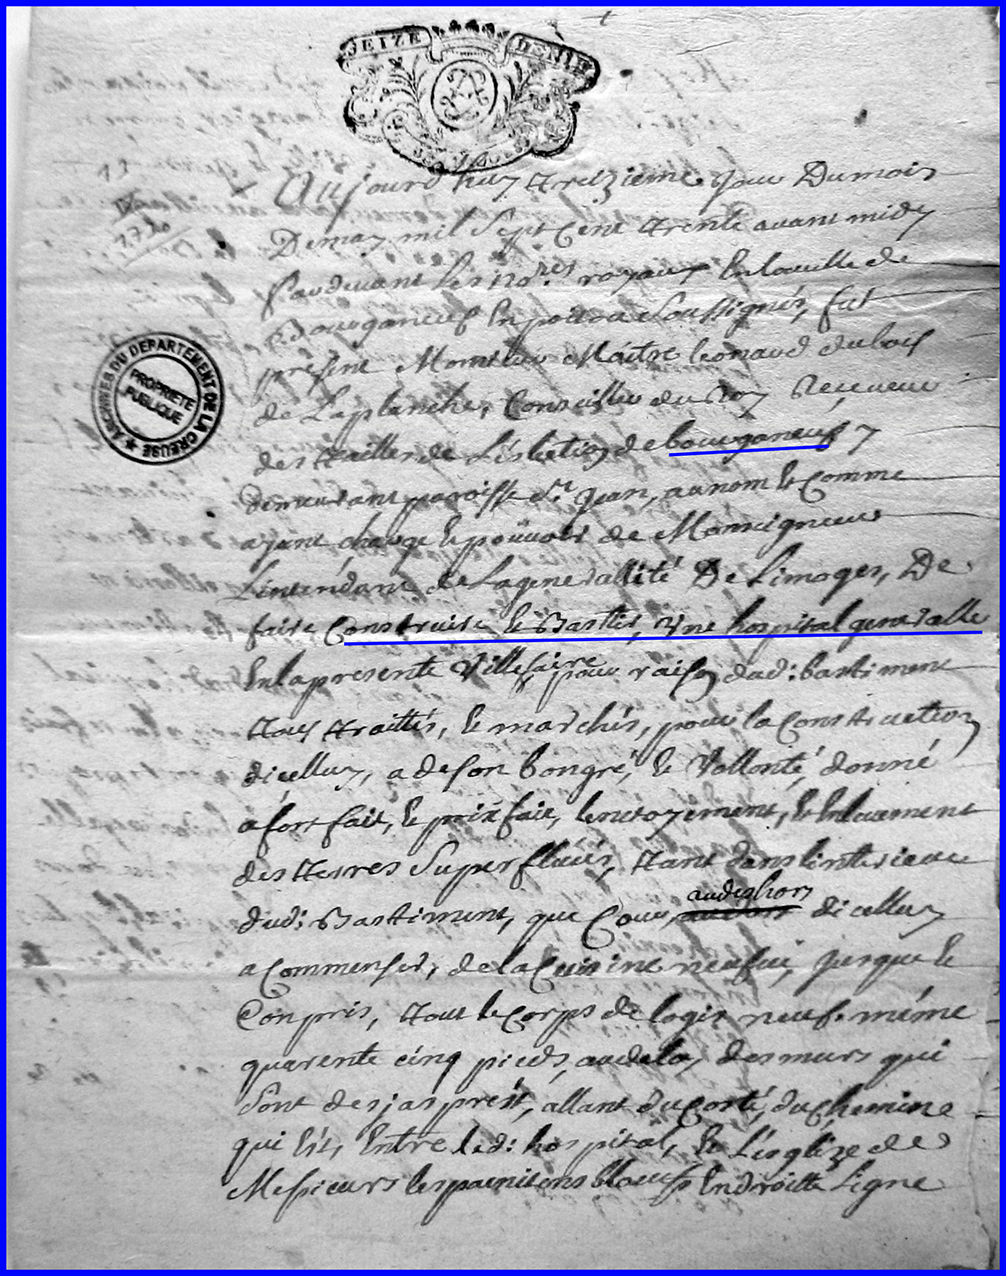 SEIZE DENIE
13
1730
Aujourd'huy treizieme jour Dumois
Demay mil Sept Cent trente avant midy
Pardevant les no.res royaux Enlaville de
Bourganeuf En poitou Soussignés, fut
présent Monsieur Maitre leonard dubois
de Laplanche, Conseiller du Roy Receveur
des tailles de L'eslection de bourganeuf
demeurant paroisse St Jean, au nom Et Comme
ayant charge Et pouvoir de Monseigneur
L'intendant de Lageneralité De Limoges, De
faire Construire Et Bastir, Une hospital generalle
Enlapresente Ville, faire pour raison dud: bastiment
tous traittés, Et marchés, pour la Construction
dicelluy, a de son bongré, Et Vollonté, donné
a forfait, Et prix fait, lenetoyement, Et Enlevement
des terres Superflues, tant dans linterieur
dud: Bastiment, que Cour, audeshors dicelluy
a Commenser, de la Cuisine neufve, jusque Et
Conpris, tout le Corps de logis neuf. même
quarente cinq pieds, audela, des murs qui
Sont desjas prest, allant du Costé, du Chemine
qui Est, Entre led: hospital, Et L'esglize de
Messieurs les painitens bleufs En droitte Ligne
ARCHIVES DU DEPARTEMENT DE LA CREUSE
PROPRIETE
PUBLIQUE